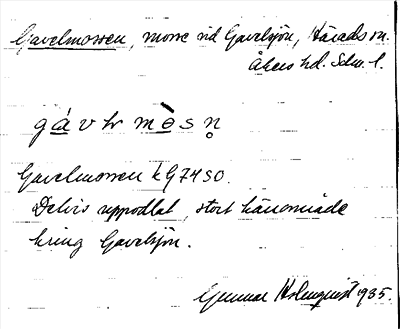 Gavelmossen, mosse vid Gavelsjön, Härads sn.
Åkers hd. Sdm. l.
gávḷ mèsn̥
Gavelmossen k G74SO.
Delvis uppodlat, stort kärrområde
kring Gavelsjön.
Gunnar Holmquist 1935.